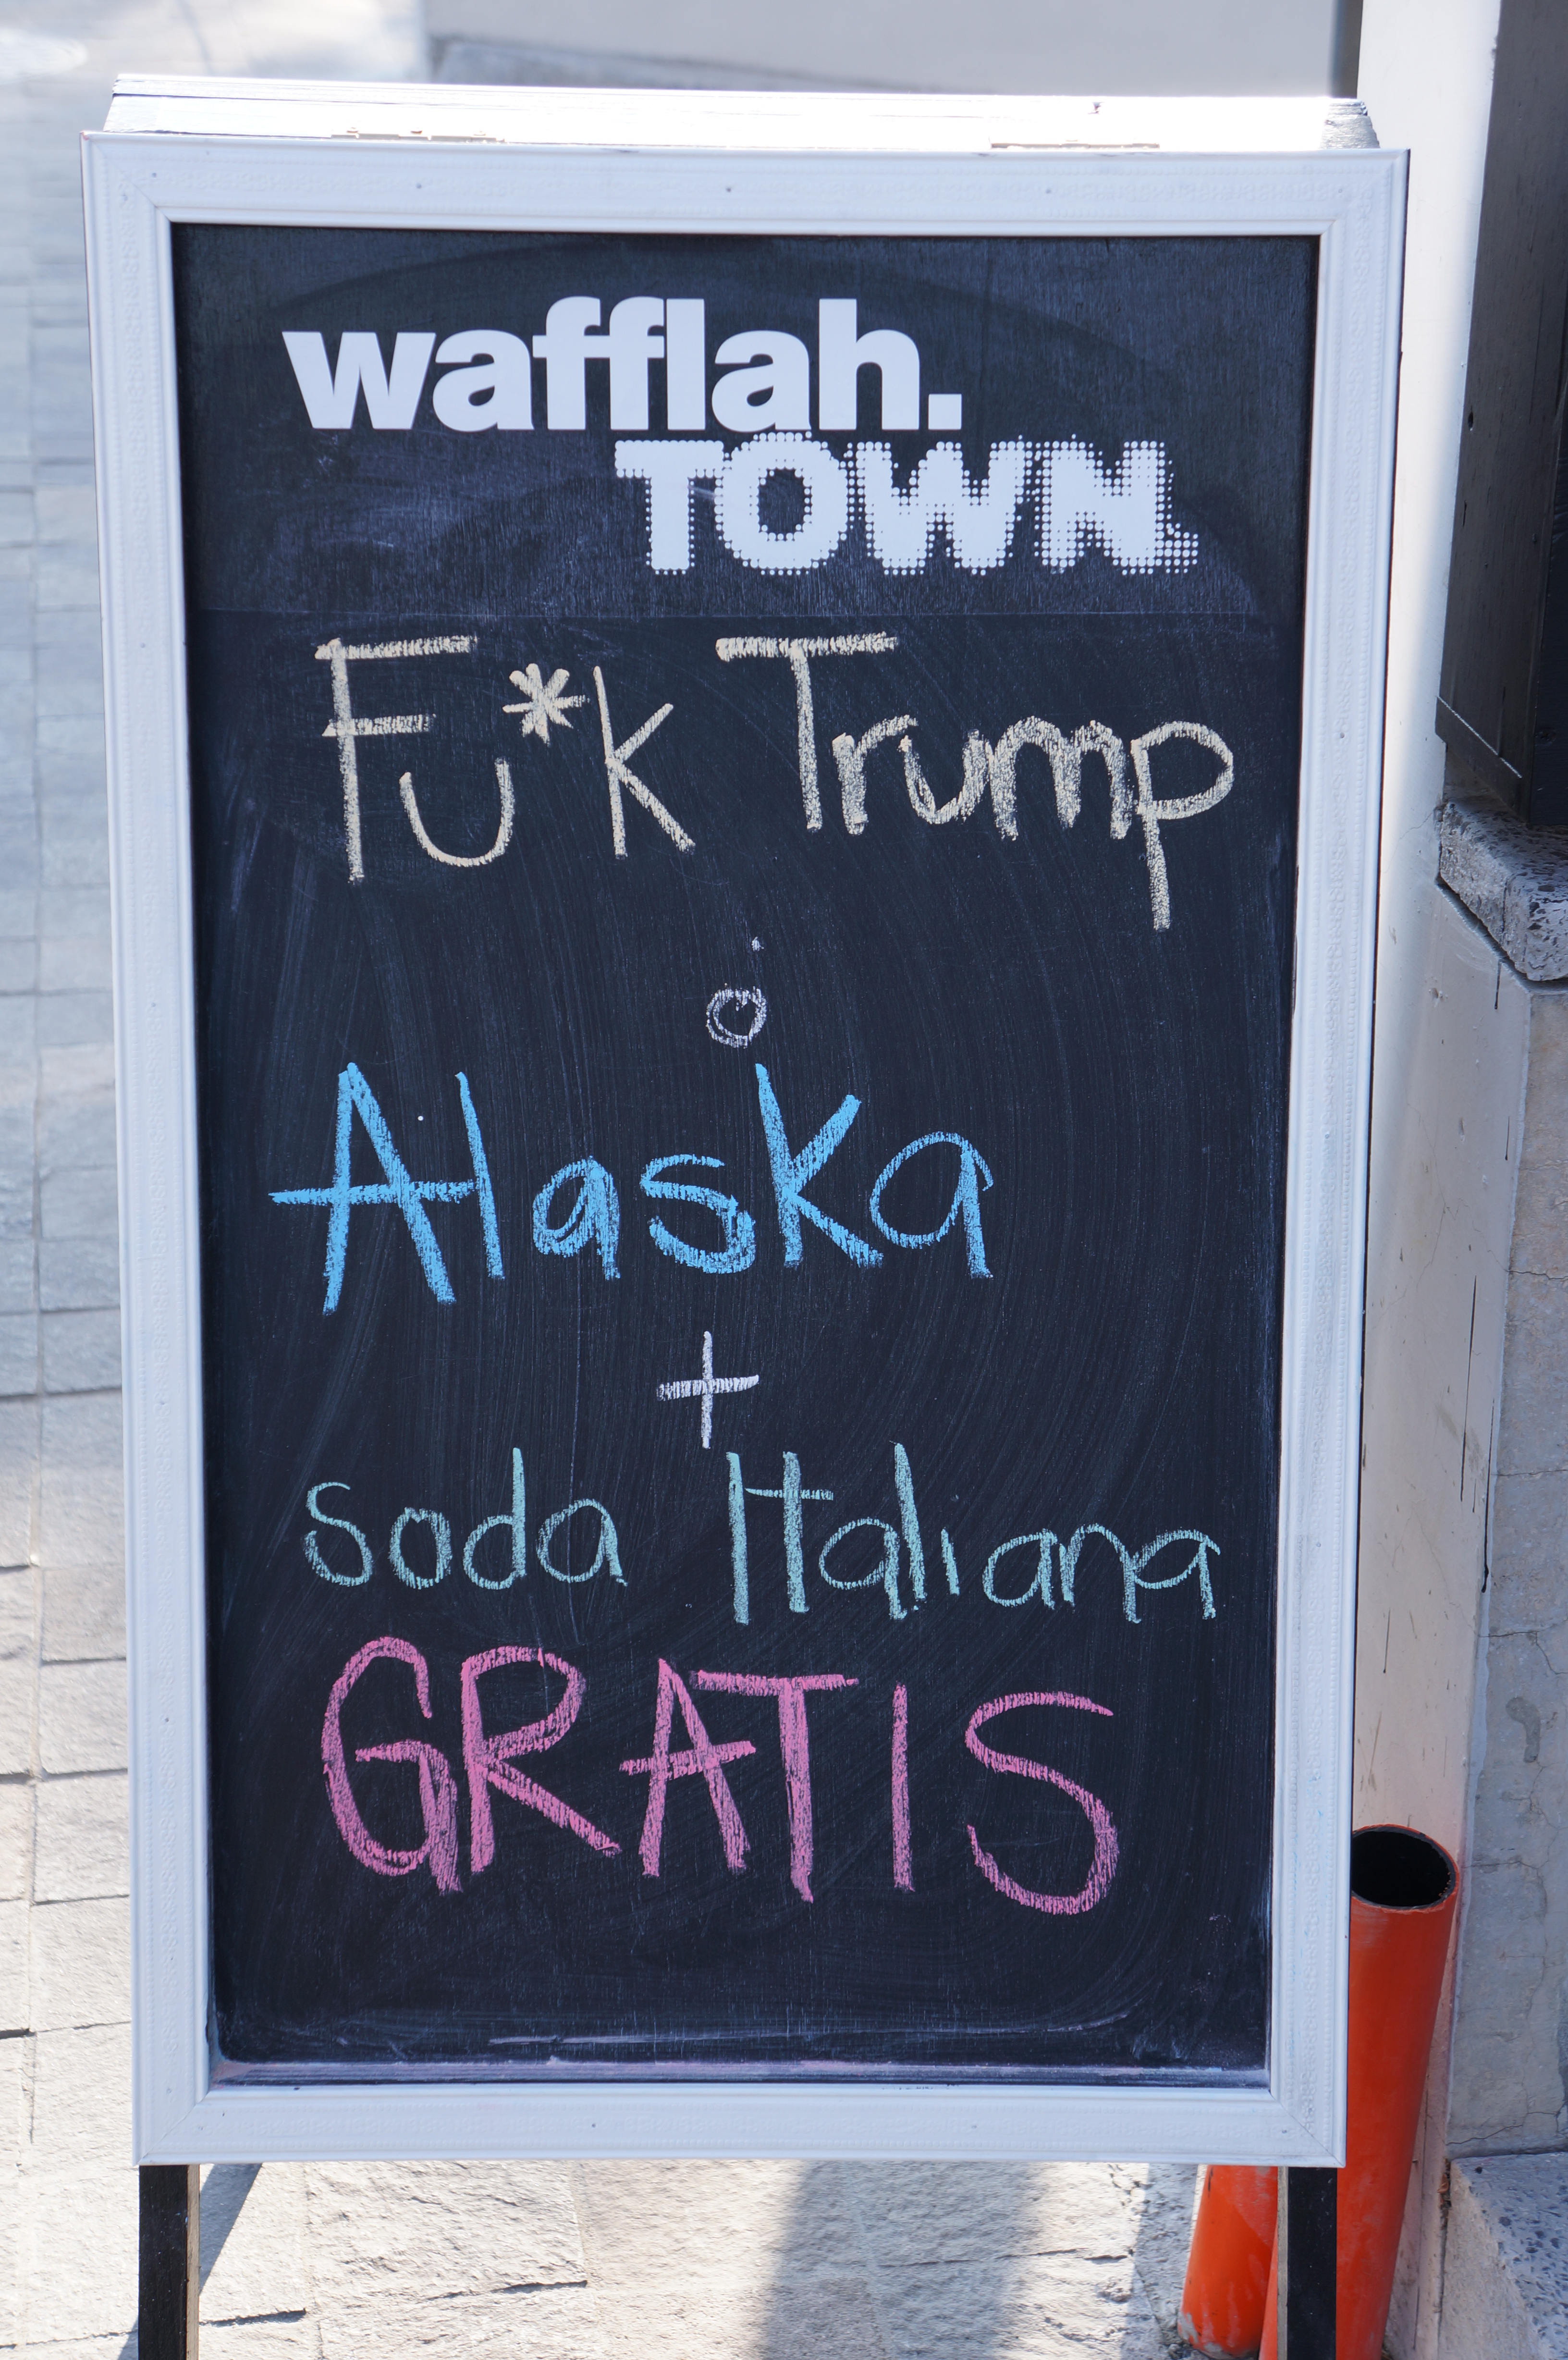 wafflah.
TOWN.
Fu*k Trump
ó
Alaska
+
soda Italiana
GRATIS